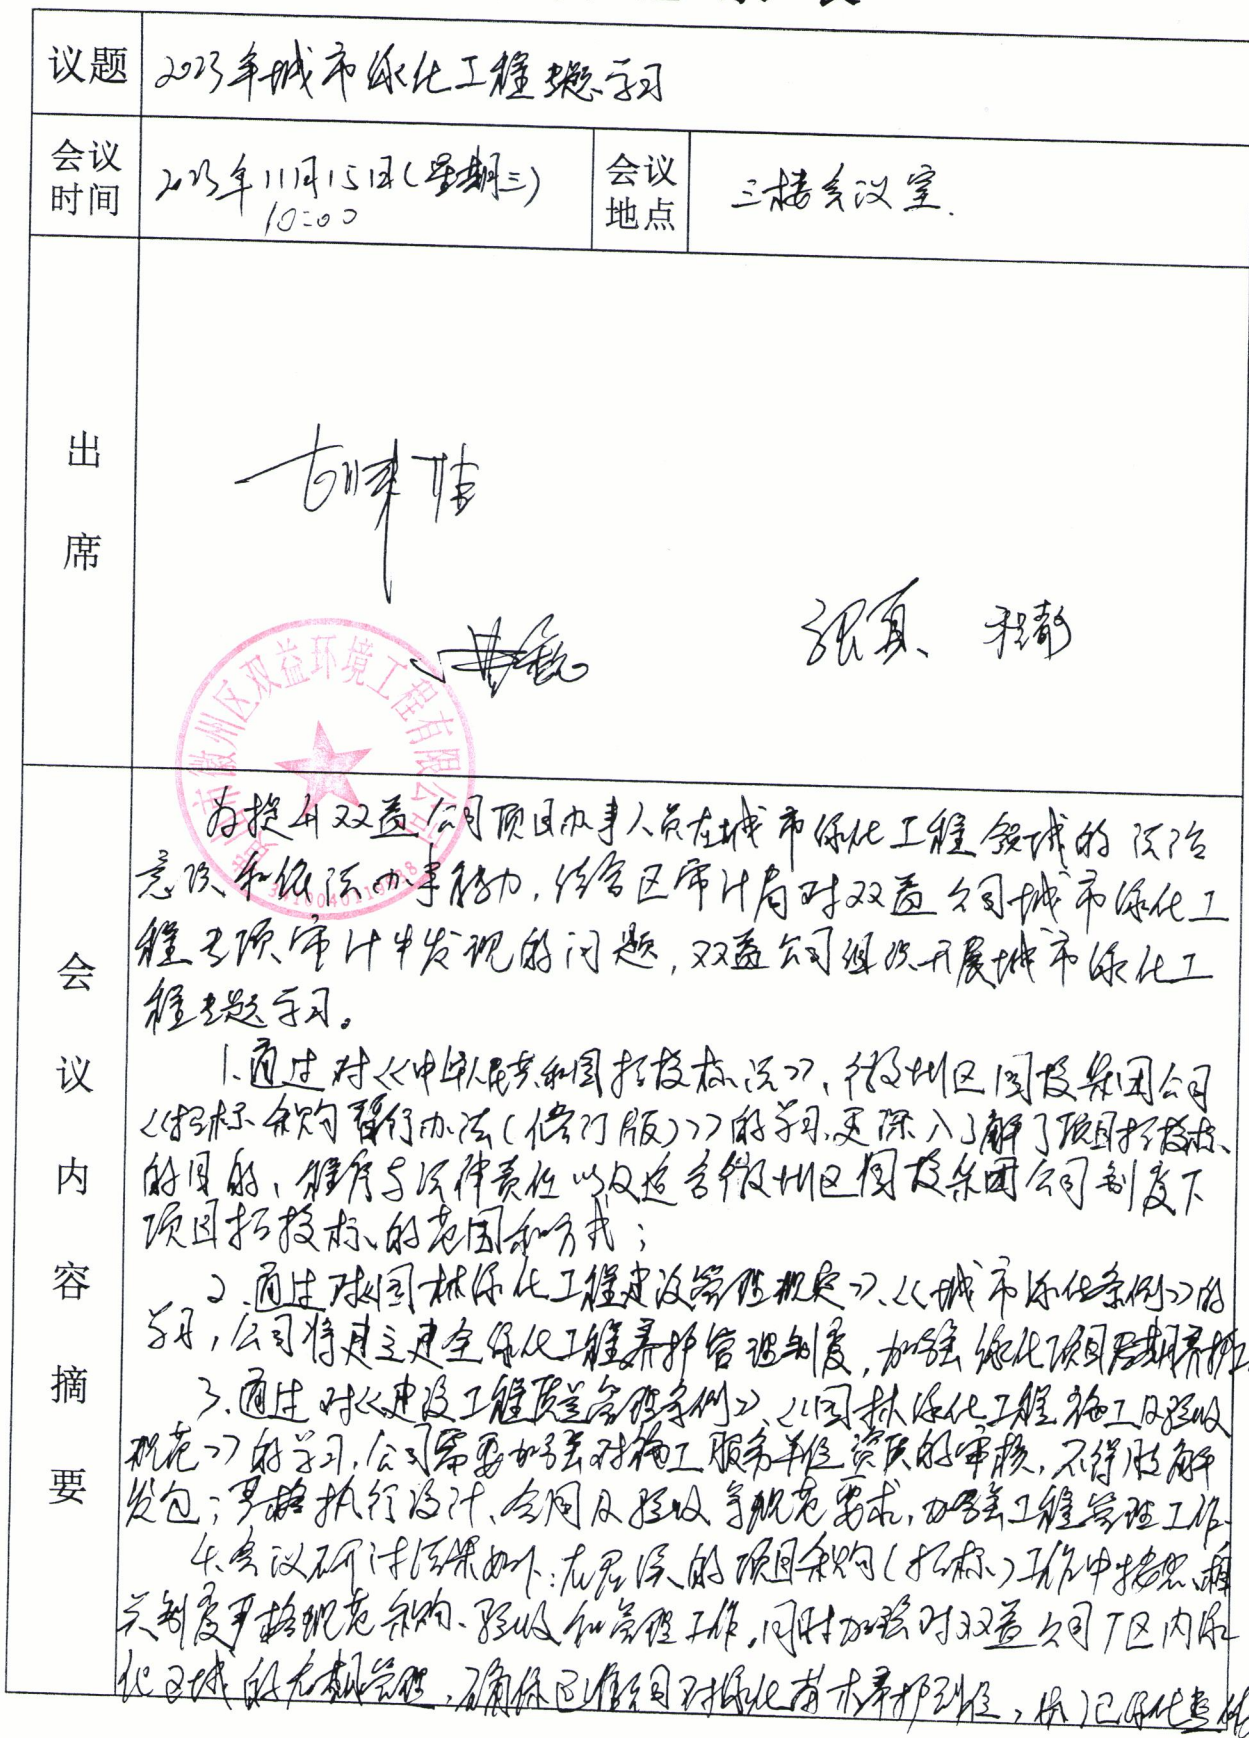 议题 2023年城市绿化工程专题学习
会议时间 2023年11月15日(星期三) 10:00 会议地点 三楼会议室.
出席
张真 程静
黄山市徽州区双益环境工程有限公司
会议内容摘要
为提升双益公司项目办事人员在城市绿化工程领域的法治
意识和依法办事能力,结合区审计局对双益公司城市绿化工
程专项审计中发现的问题,双益公司组织开展城市绿化工
程专题学习。
1.通过对《中华人民共和国招投标法》、徽州区国投集团公司
《招标采购暂行办法(修订版)》的学习,更深入了解了项目招投标
的目的、程序与法律责任以及适合徽州区国投集团公司制度下
项目招投标的范围和方式;
2.通过对《园林绿化工程建设管理规定》、《城市绿化条例》的
学习,公司将建立健全绿化工程养护管理制度,加强绿化项目后期养护
3.通过对《建设工程质量管理条例》、《园林绿化工程施工及验收
规范》的学习,公司需要加强对施工服务单位资质的审核,不得肢解
发包;严格执行设计、合同及验收等规范要求,加强工程管理工作.
4.会议研讨结果如下:在后续的项目采购(招标)工作中按照相
关制度严格规范采购、验收和管理工作,同时加强对双益公司厂区内绿
化区域的后期管理,确保对绿化苗木养护到位,